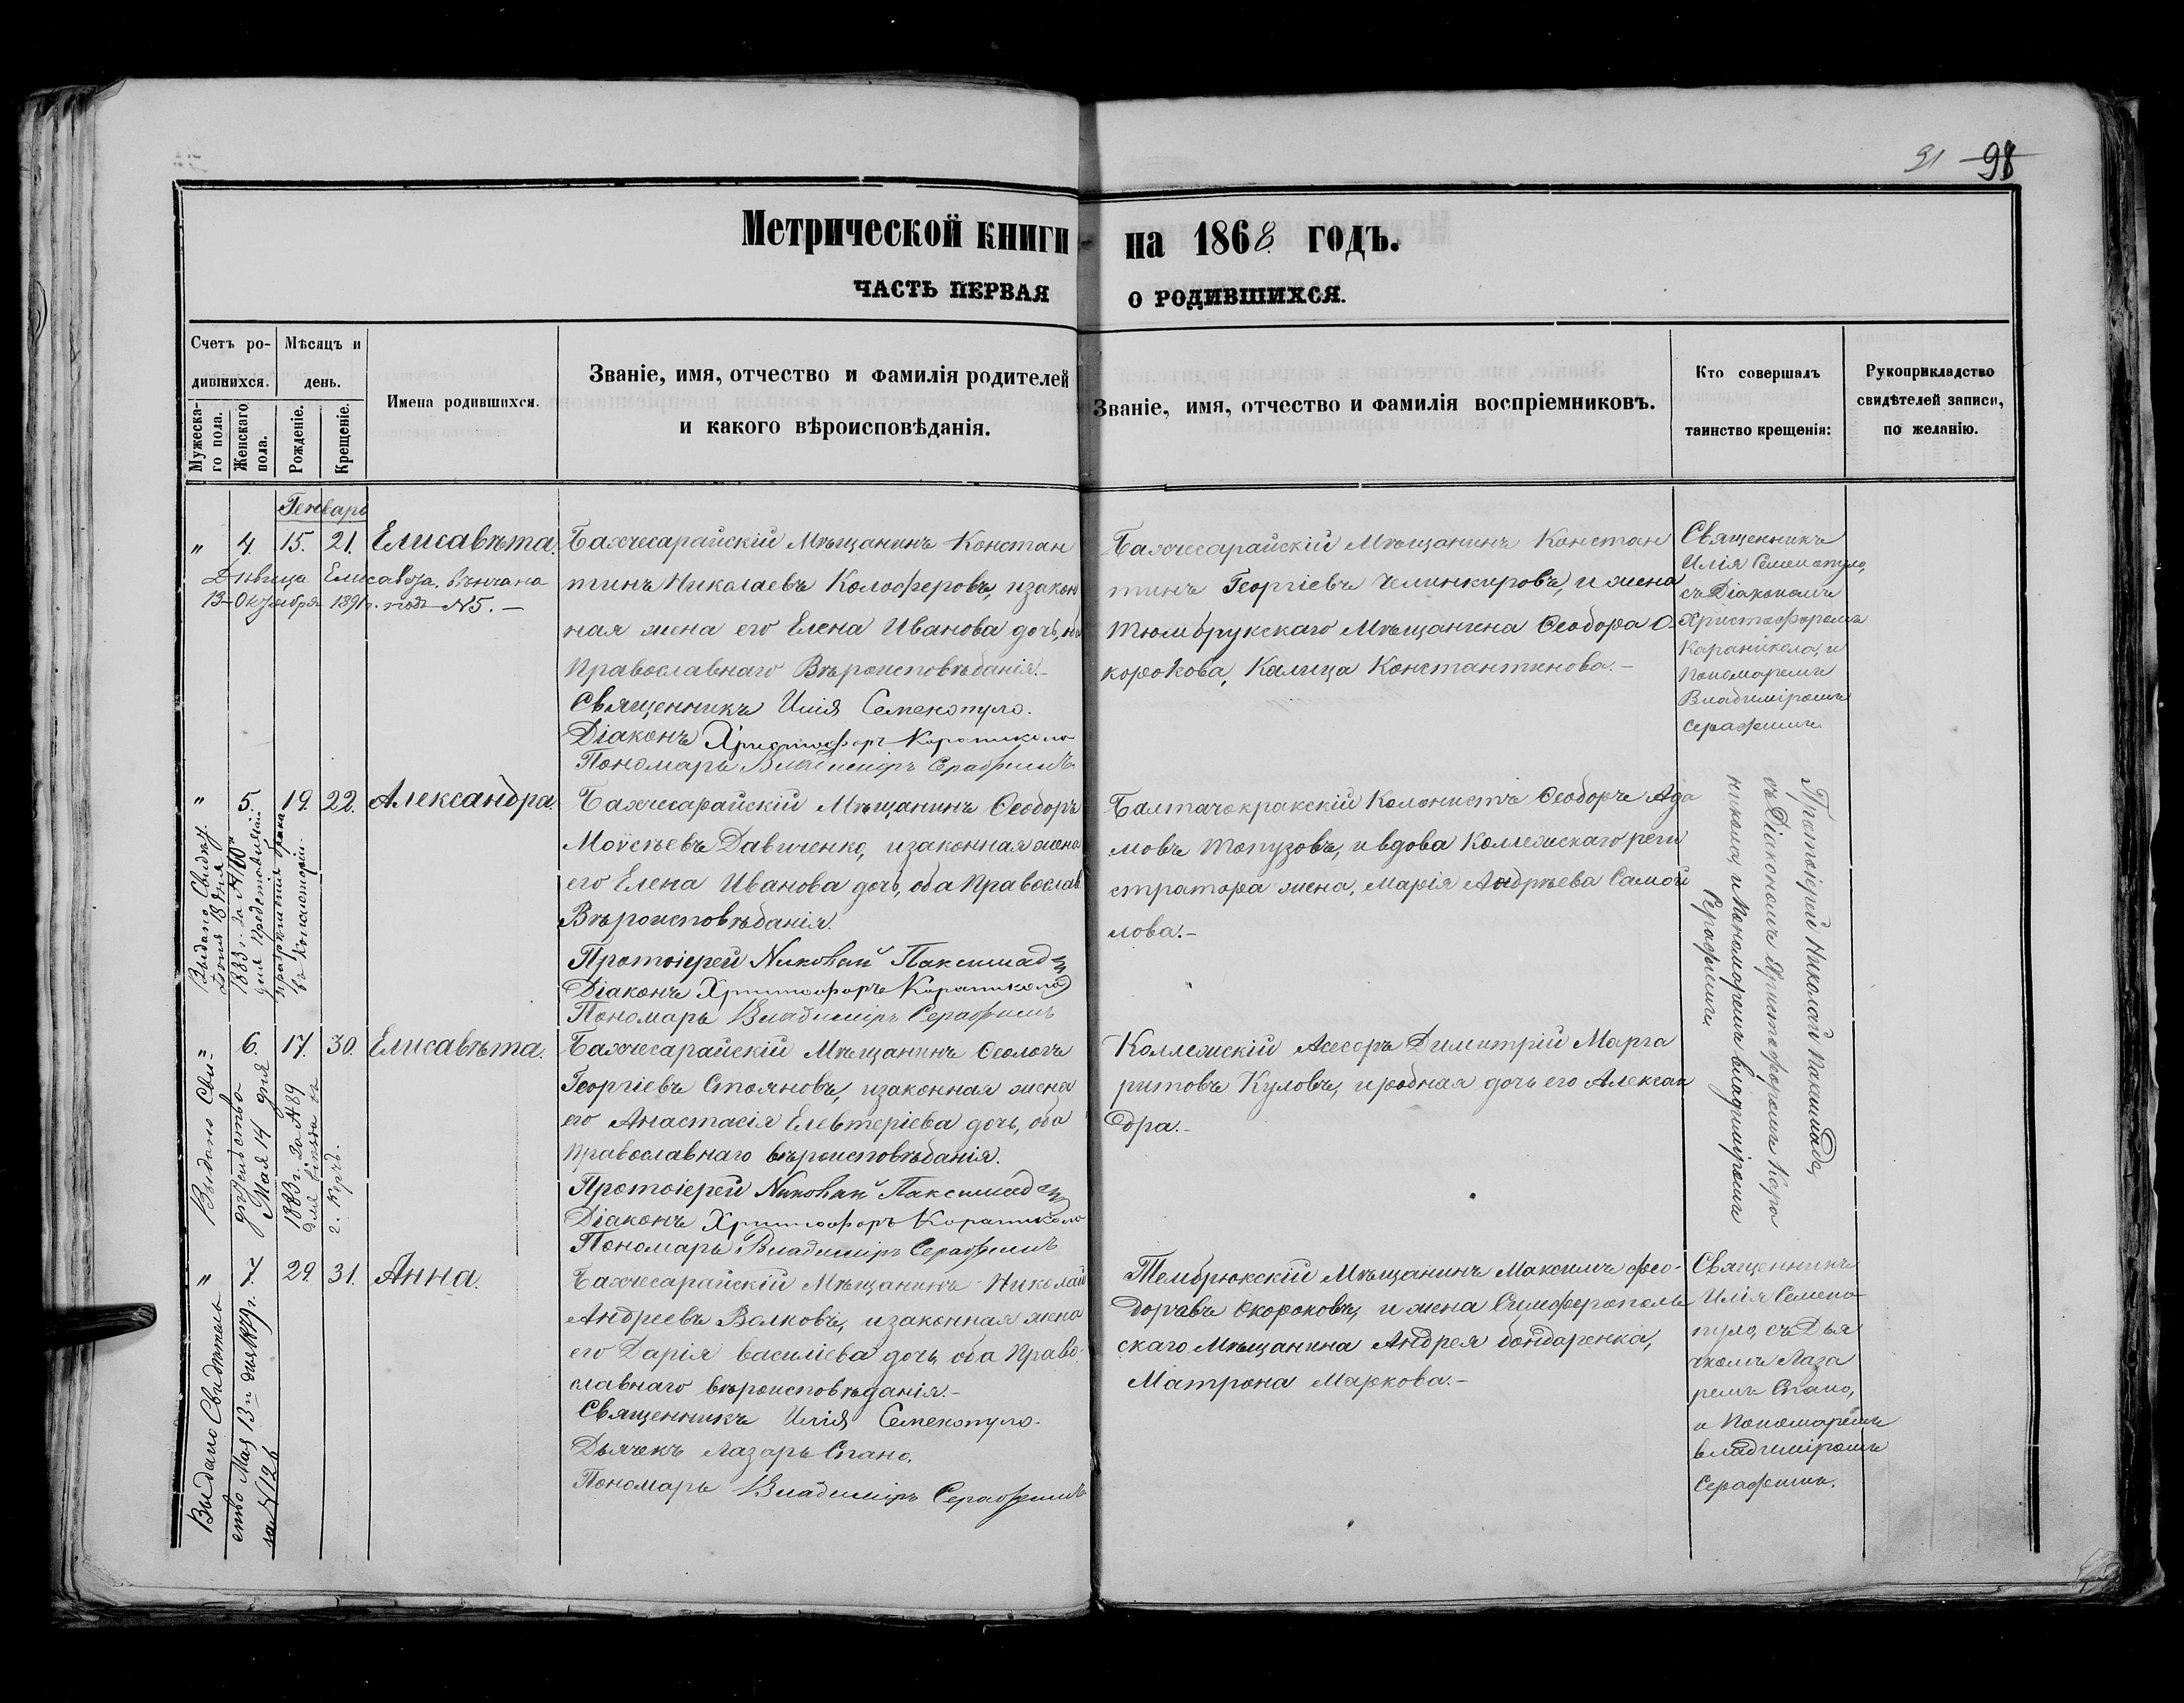 91 98
Метрической книги на 1868 годъ.
ЧАСТЬ ПЕРВАЯ О РОДИВШИХСЯ.
Счетъ ро-
дившихся.
Мужеска-
го пола.
Женскаго
пола.
Мѣсяцъ и
день.
Рожденіе.
Крещеніе.
Имена родившихся.
Званіе, имя, отчество и фамилія родителей
и какого вѣроисповѣданія.
Званіе, имя, отчество и фамилія воспріемниковъ.
Кто совершалъ
таинство крещенія:
Рукоприкладство
свидѣтелей записи,
по желанію.
Генваря
" 4. 15. 21. Елисавѣта.
Дѣвица Елисавѣта. Вѣнчана
13 Октября 1891 г. подъ N5.-
Бахчесарайскій Мѣщанинъ Констан
тинъ Николаевъ Колоферовъ, изакон
ная жена его Елена Иванова дочь, оба
Православнаго Вѣроисповѣданія.-
Священникъ Илія Семенопуло.
Діаконъ Христофоръ Караникола
Пономарь Владиміръ Серафимъ
Бахчесарайскій Мѣщанинъ Констан
тинъ Георгіевъ Челинкировъ, и жена
Тюмбрукскаго Мѣщанина Ѳеодора О-
корокова, Калица Константинова.-
Священникъ
Илія Семенопуло,
съ Діакономъ
Христофоромъ
Караникола, и
Пономаремъ
Владиміромъ
Серафимъ.
" 5. 19. 22. Александра.
Выдано Свидѣт.
Іюня 18 дня
1883 г. за №100
для представленія
разрѣшенія брака
въ Консисторіи.
Бахчесарайскій Мѣщанинъ Ѳеодоръ
Моѵсѣевъ Давиченко, изаконная жена
его Елена Иванова дочь, оба Православ.
Вѣроисповѣданія.
Протоіерей Николай Паксимад
Діаконъ Христофоръ Караникола
Пономарь Владиміръ Серафимъ
Балтачокракскій Колонистъ Ѳеодоръ Ада
мовъ Топузовъ, и вдова Коллежскаго реги
стратора жена, Марія Андрѣева Самой
лова.-
Протоіерей Николай Паксимадъ,
съ Діакономъ Христофоромъ Кара
никола, и Пономаремъ Владиміромъ
Серафимъ,
" 6. 17. 30. Елисавѣта.
Выдано Сви-
дѣтельство
Мая 14 дня
1883 г. за №89
г. Керч.
Бахчесарайскій Мѣщанинъ Ѳеологъ
Георгіевъ Стояновъ, изаконная жена
его Анастасія Елевтеріева дочь, оба
Православнаго вѣроисповѣданія.
Протоіерей Николай Паксимад
Діаконъ Христофоръ Караникола
Пономарь Владиміръ Серафимъ
Коллежскій Асесоръ Димитрій Марга
ритовъ Куловъ, иродная дочь его Алексан
дра.-
" 7. 29. 31. Анна.
Выдано Свидѣтель
ство Мая 13го дня 1879 г.
за №126
Бахчесарайскій Мѣщанинъ Николай
Андреевъ Волковъ, изаконная жена
его Дарія Василіева дочь, оба Право-
славнаго вѣроисповѣданія.-
Священникъ Илія Семенопуло.
Дьячекъ Лазарь Спано.
Пономарь Владиміръ Серафимъ
Тембрюкскій Мѣщанинъ Максимъ Фео-
доравъ Окороковъ, и жена Симферополь
скаго Мѣщанина Андрея Бондаренка,
Матрона Маркова.-
Священникъ
Илія Семено-
пуло, съ Дья
чкомъ Лаза
ремъ Спано,
и Пономаремъ
Владиміромъ
Серафимъ.